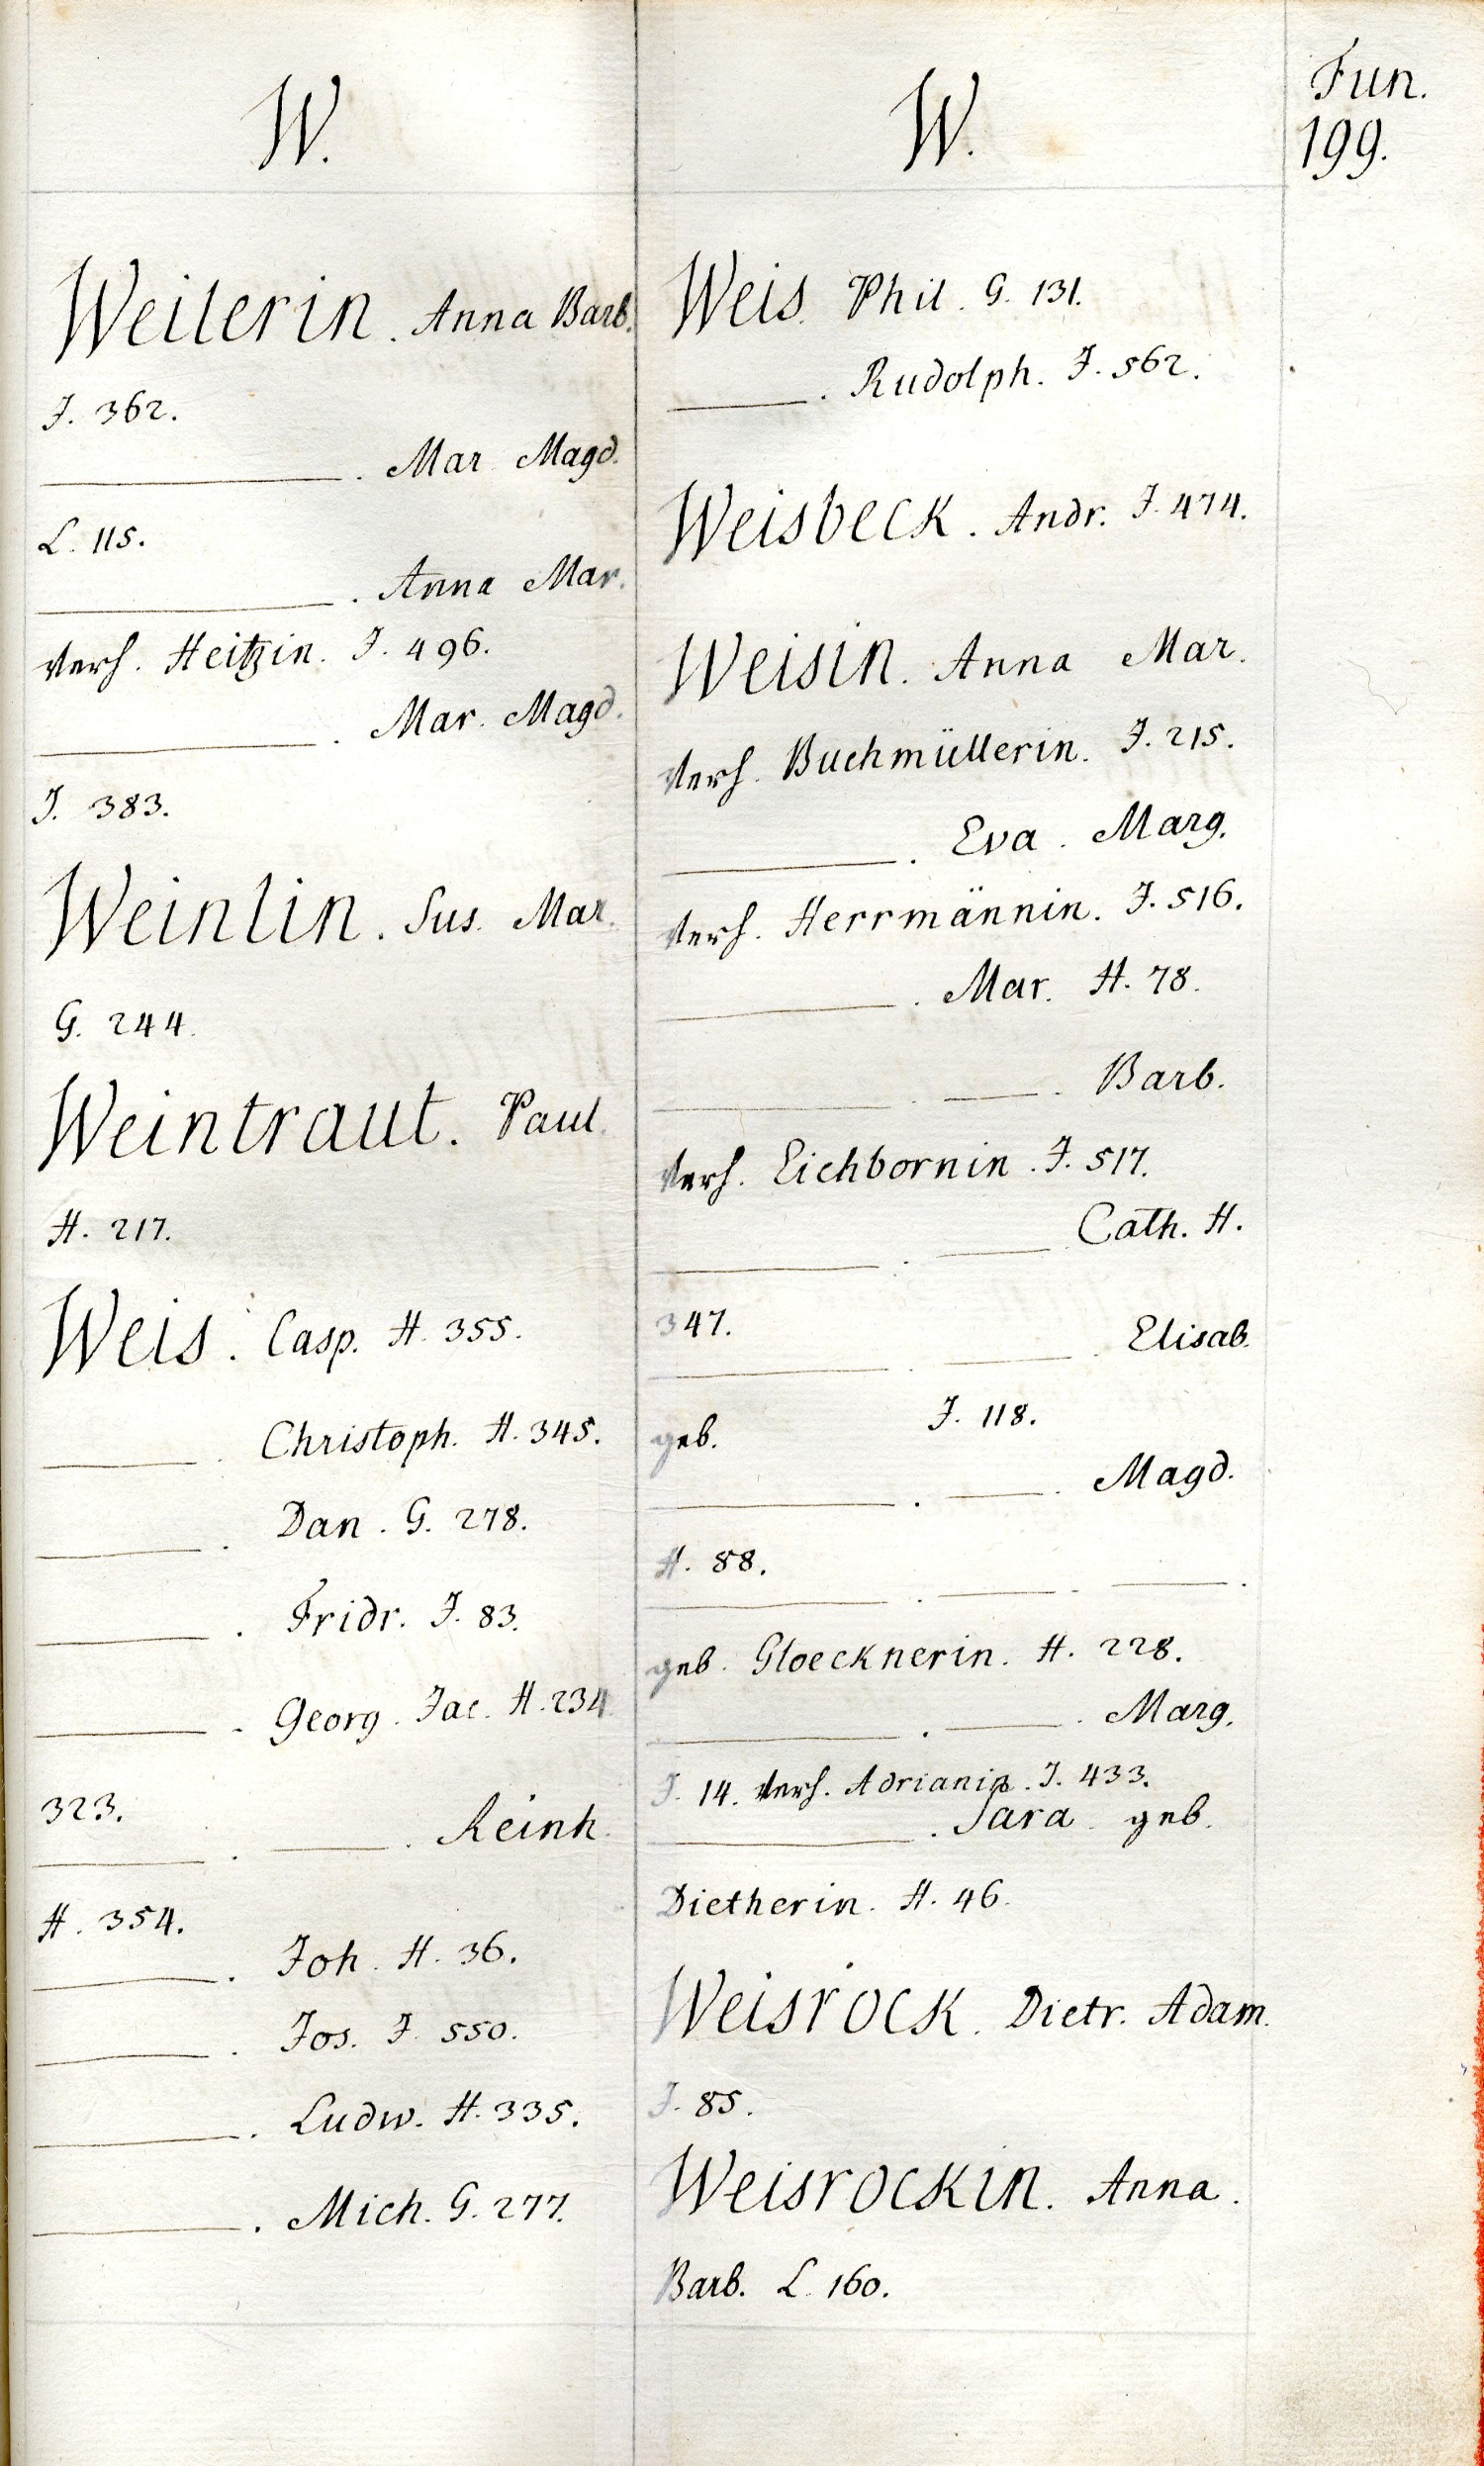 W.
Weilerin. Anna Barb.
J. 362.
———. Mar. Magd.
L. 115.
———. Anna Mar.
verh. Heitzin. J. 496.
———. Mar. Magd.
J. 383.
Weinlin. Sus. Mar.
G. 244.
Weintraut. Paul.
H. 217.
Weis. Casp. H. 355.
———. Christoph. H. 345.
———. Dan. G. 278.
———. Fridr. J. 83.
———. Georg. Jac. H. 234
323.
———. ———. Reinh.
H. 354.
———. Joh. H. 36.
———. Jos. J. 550.
———. Ludw. H. 335.
———. Mich. G. 277.
W.
Weis. Phil. G. 131.
———. Rudolph. J. 562.
Weisbeck. Andr. J. 474.
Weisin. Anna Mar.
verh. Buchmüllerin. J. 215.
———. Eva. Marg.
verh. Herrmännin. J. 516.
———. Mar. H. 78.
———. ———. Barb.
verh. Eichbornin. J. 517.
———. ———. Cath. H.
347.
———. ———. Elisab.
geb. J. 118.
———. ———. Magd.
H. 88.
———. ———. ———.
geb. Gloecknerin. H. 228.
———. ———. Marg.
J. 14. verh. Adrianin. J. 433.
———. Sara. geb.
Dietherin. H. 46.
Weisrock. Dietr. Adam.
J. 85.
Weisrockin. Anna.
Barb. L. 160.
Fun.
199.